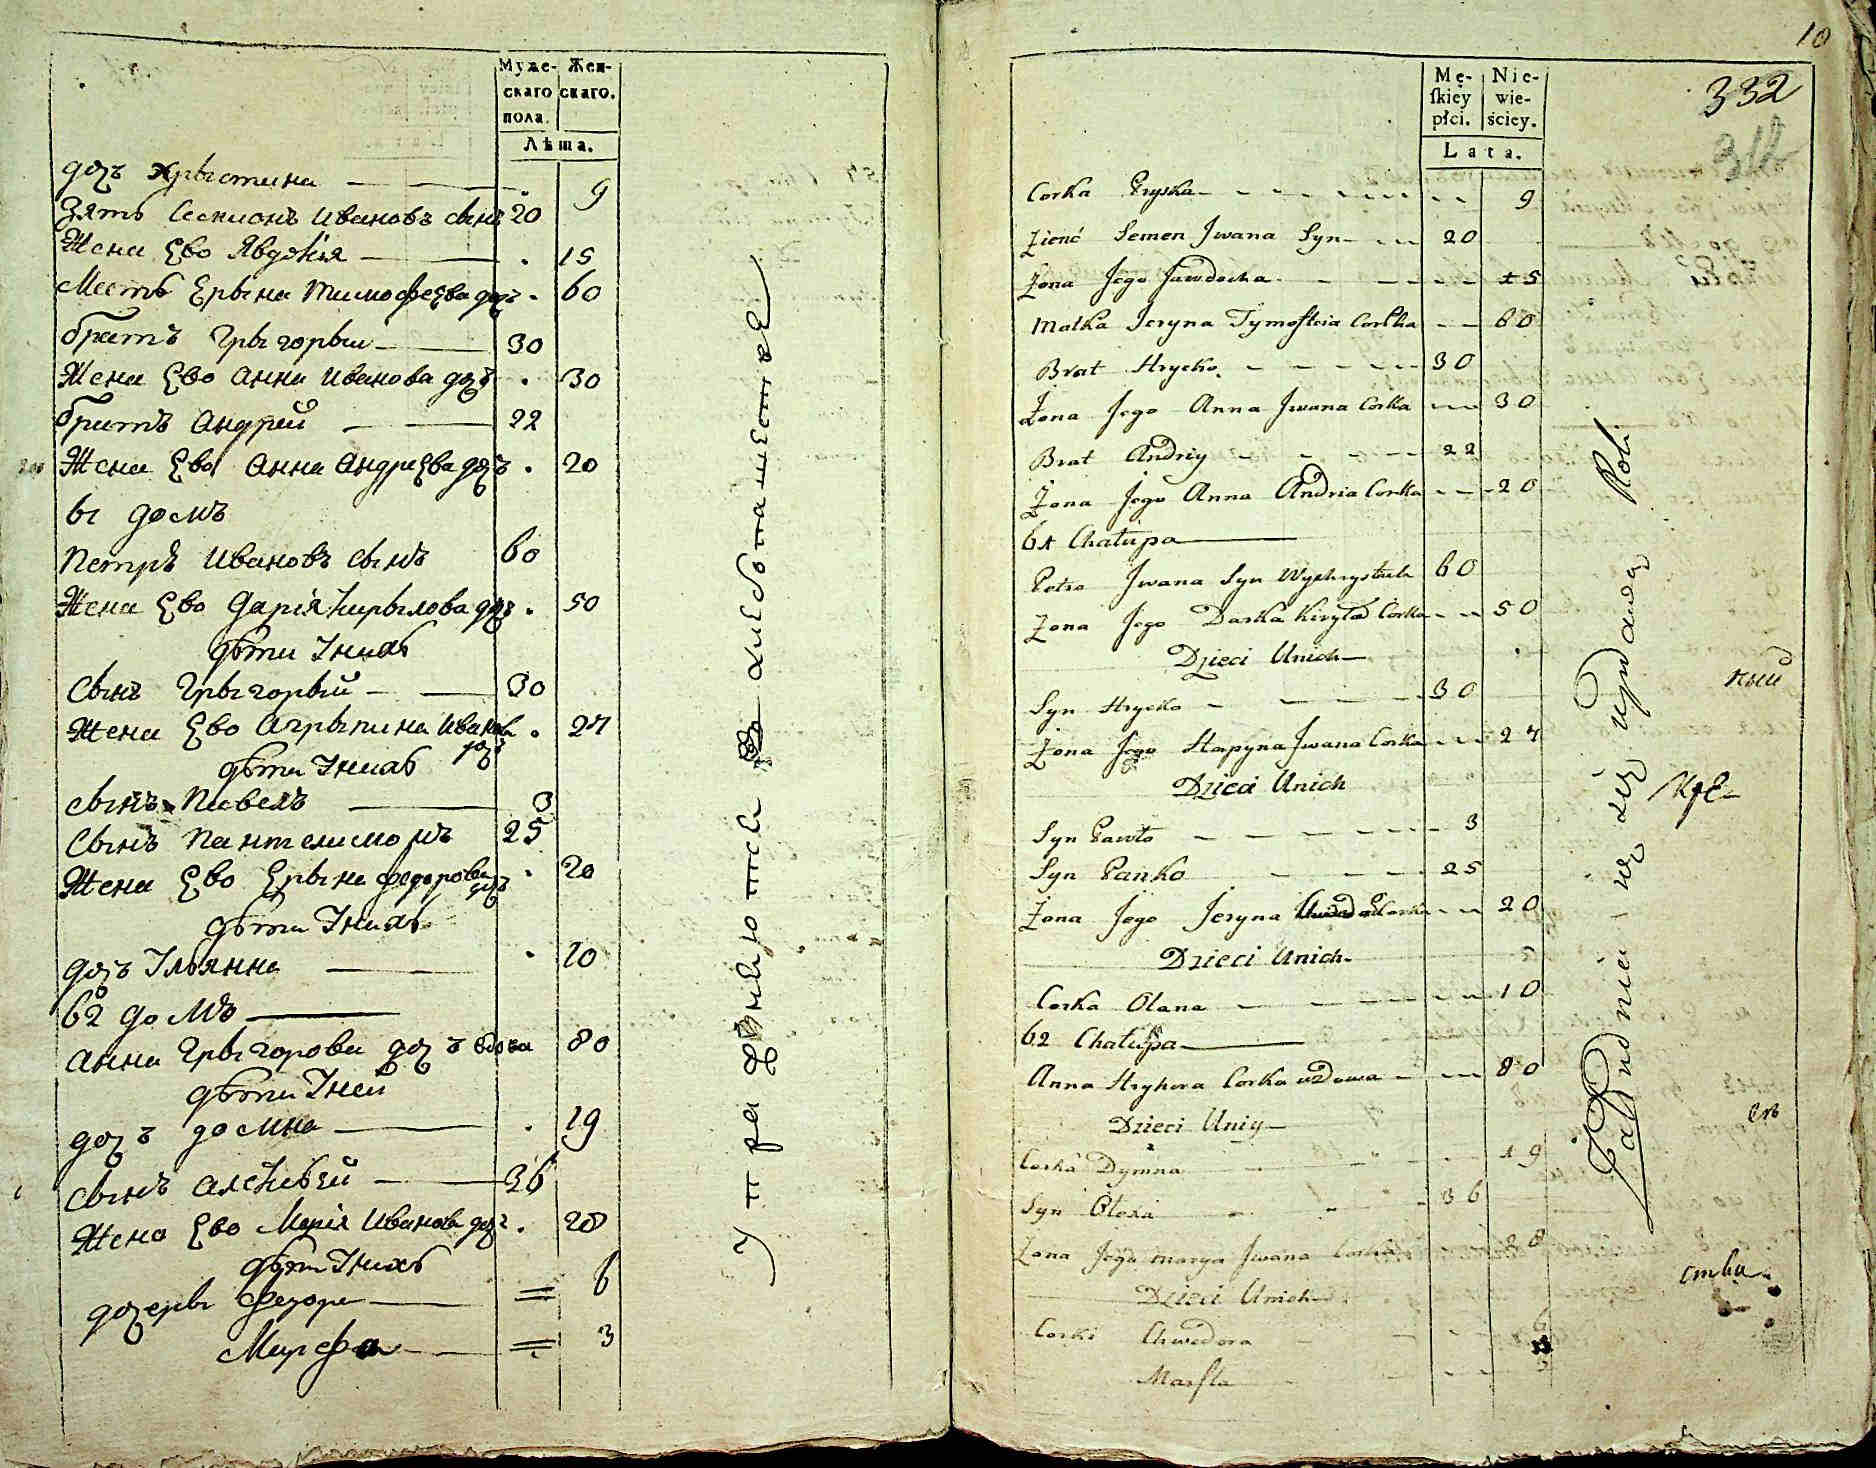 Муже-
скаго
пола.
Жен-
скаго.
Лѣта.
дочъ Хрыстина — — . 9
Зять Семионъ Ивановъ сынъ 20
Жена Ево Явдокія — — . 15
Мать Ерына Тимофеева дочъ . 60
братъ Грыгорыи — — 30
Жена Ево Анна Иванова дочъ . 30
братъ Андрей — — 22
Жена Ево Анна Андреева дочъ . 20
61 домъ
Петръ Ивановъ сынъ 60
Жена Ево Дарія Кирылова дочъ . 50
дѣти Унихъ
Сынъ Грыгорый — — 30
Жена Ево Агрыпина Иванова дочъ . 27
дѣти Унихъ
сынъ Павелъ — 3
Сынъ Пантелимонъ 25
Жена Ево Ерына Федорова дочъ . 20
дѣти Унихъ
дочъ Ульянна — . 10
62 домъ —
Анна Грыгорова дочъ вдова 80
дѣти Уней
дочъ домна — . 19
сынъ Алексѣй — — 36
Жена Ево Марія Иванова дочъ . 28
дѣти Унихъ
дочеры Федора — = 6
Марфа — — = 3
Упражняются въ хлебопашестве
10
332
312
Mę-
skiey
płci.
Nie-
wie-
ściey.
Lata.
Corka Pryska - - - - 9
Zienć Semen Jwana Syn - - - 20
Żona Jego Jawdocha - - - - 15
Matka Jeryna Tymofieia Corka - - 60
Brat Hrycko - - - - 30
Żona Jego Anna Jwana Corka - - - 30
Brat Andriy - - - - 22
Żona Jego Anna Andria Corka - - - 20
61 Chałupa —
Petro Jwana Syn 60
Żona Jego Darka Kiryła Corka - - 50
Dzieci Unich —
Syn Hrycko - - - 30
Żona Jego Hapyna Jwana Corka - - - 27
Dzieci Unich
Syn Pawło - - - - 3
Syn Panko - - - 25
Żona Jego Jeryna Corka - - 20
Dzieci Unich -
Corka Olana - - - - 10
62 Chałupa —
Anna Hryhora Corka wdowa - - - 80
Dzieci Uniy —
Corka Dymna - - - 19
Syn Olexa - - 36
Żona Jego Marya Jwana Corka 28
Dzieci Unich —
Corki Chwedora - - - 6
Marfta - - - 3
Zatrudnieni w się uprawą Roli
кре-
стви